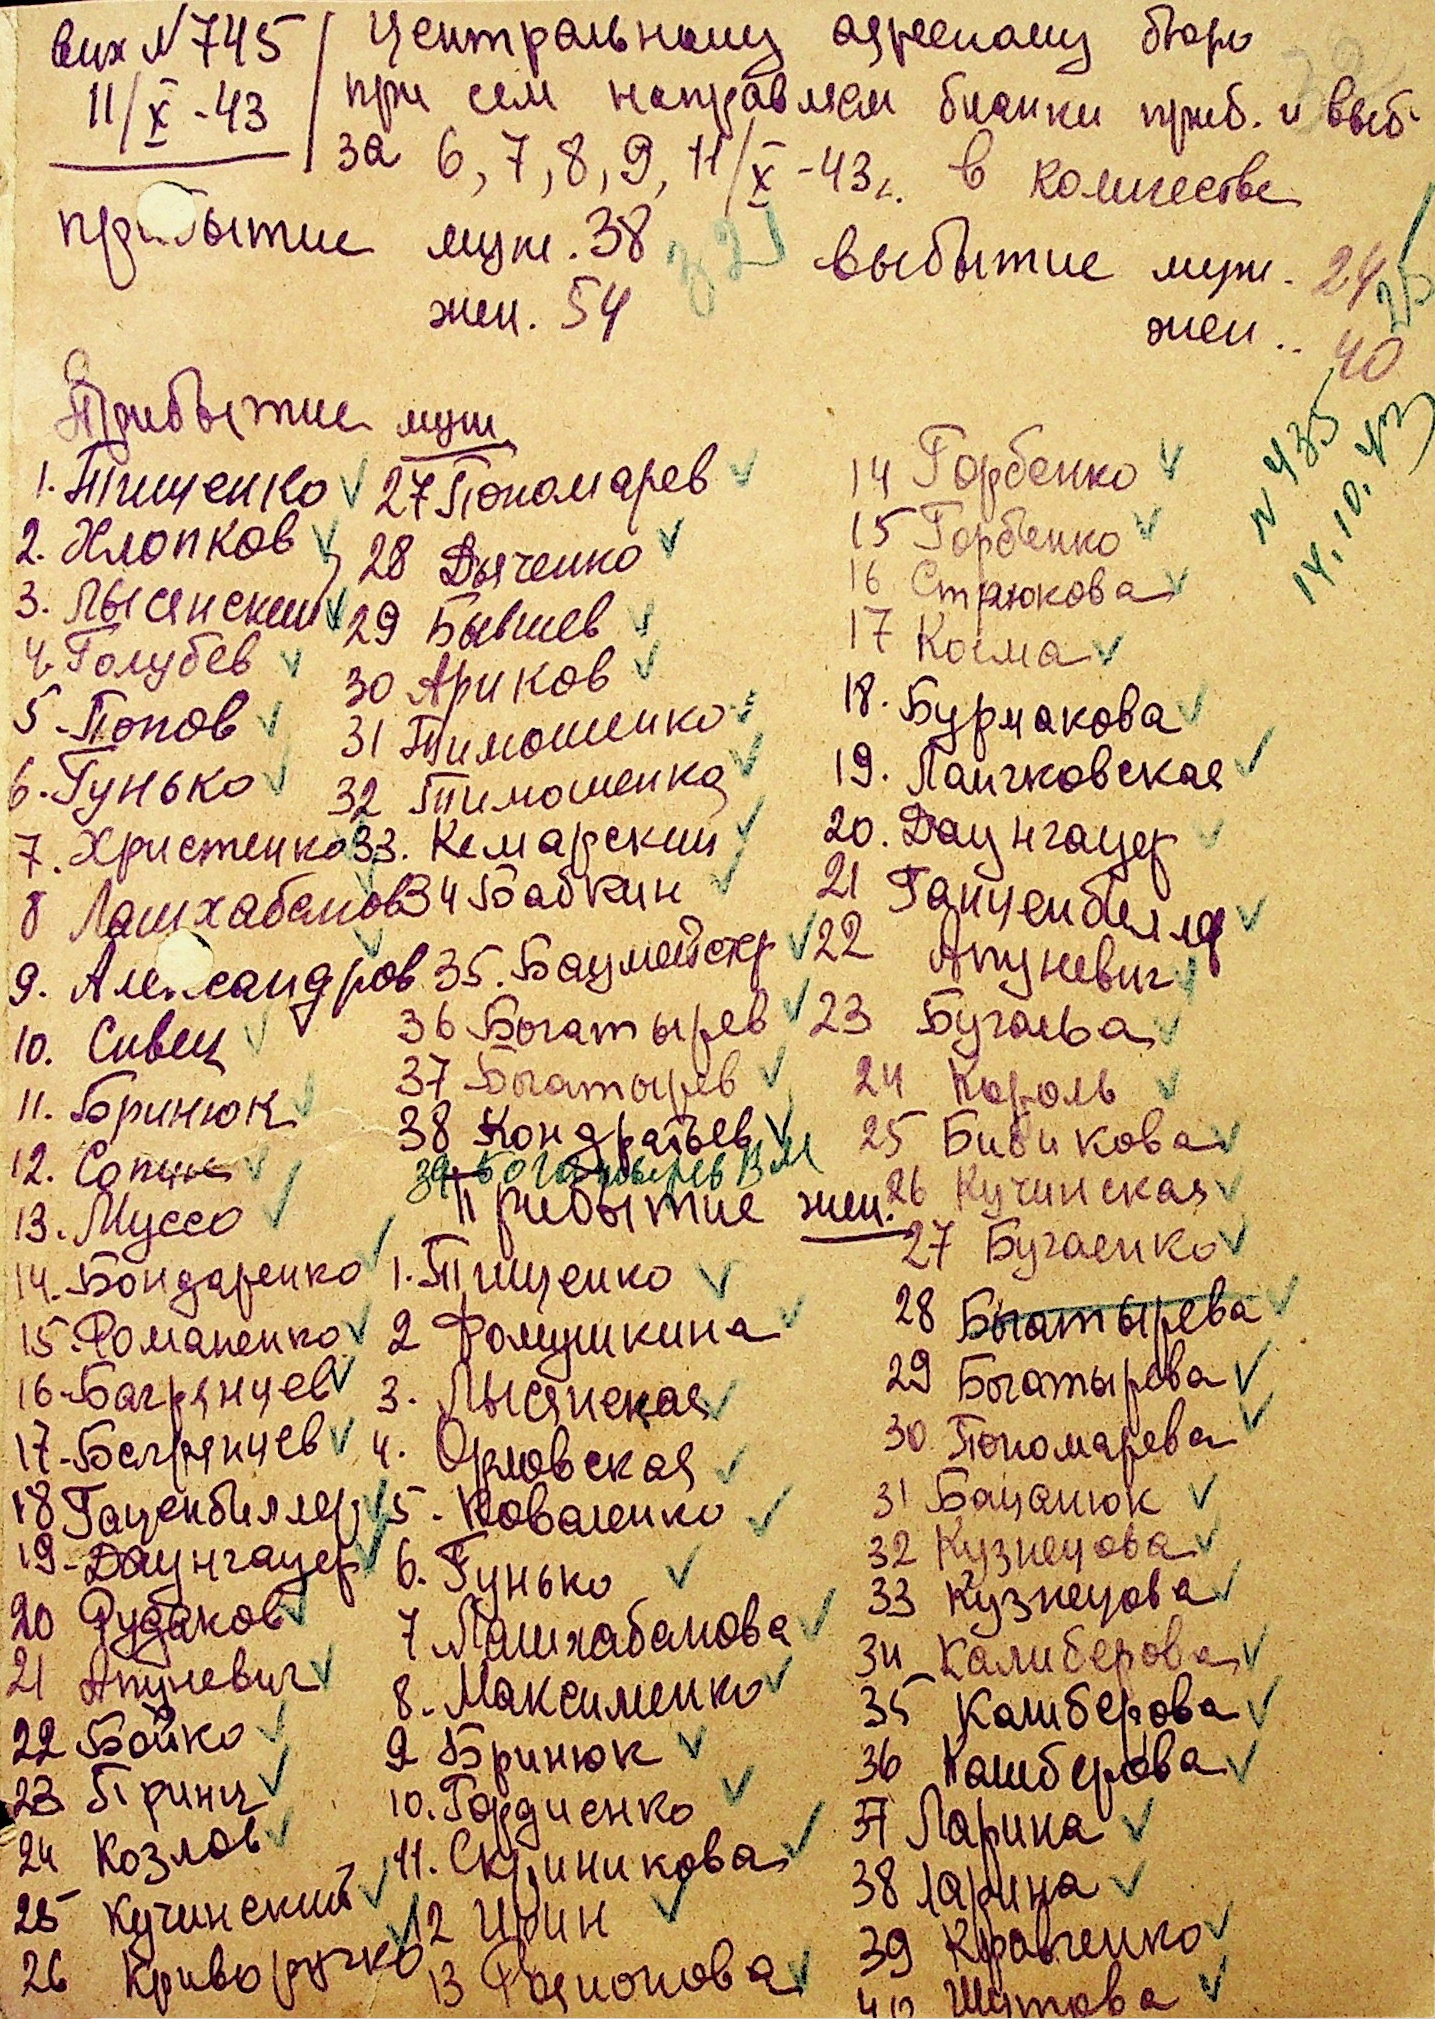 вих N 745
11/X-43
Центральному адресному бюро
при сем направляем бланки приб. и выб.
за 6, 7, 8, 9, 11/X-43г. в количестве
прибытие муж. 38
жен. 54
выбытие муж. 24
жен.. 40
N 435
14.10.43
Прибытие муж
1. Тищенко
2. Хлопков
3. Лысянский
4. Голубев
5. Попов
6. Гунько
7. Христенко
8 Лашхабанов
9. Александров
10. Сивец
11. Бринюк
12. Сопин
13. Муссо
14. Бондаренко
15. Романенко
16. Багрянцев
17. Багрянцев
18 Гаценбиллер
19. Даунгауер
20 Рудаков
21 Апуневич
22 Бойко
23 Принц
24 Козлов
25 Кучинский
26 Криворучко
27 Пономарев
28 Дьяченко
29 Бывшев
30 Ариков
31 Тимошенко
32 Тимошенко
33. Комарский
34 Бабкин
35. Баумейстер
36 Богатырев
37 Богатырев
38 Кондратьев
39. Богатырев В М
Прибытие жен.
1. Тищенко
2 Фомушкина
3. Лысянская
4. Орловская
5. Коваленко
6. Гунько
7 Лашхабанова
8. Максименко
9 Бринюк
10. Гордиенко
11. Скриникова
12 Ирин
13
14 Горбенко
15 Горбенко
16 Стрюкова
17 Косма
18. Бурмакова
19.
20. Даунгауер
21 Ганценбиллер
22 Апуневич
23
24 Король
25 Бибикова
26 Кучинская
27 Бугаенко
28 Богатырева
29 Богатырева
30 Пономарева
31 Бацанюк
32 Кузнецова
33 Кузнецова
34 Калиберова
35 Калиберова
36 Калиберова
37 Ларина
38 Ларина
39 Кравченко
40 Шутова